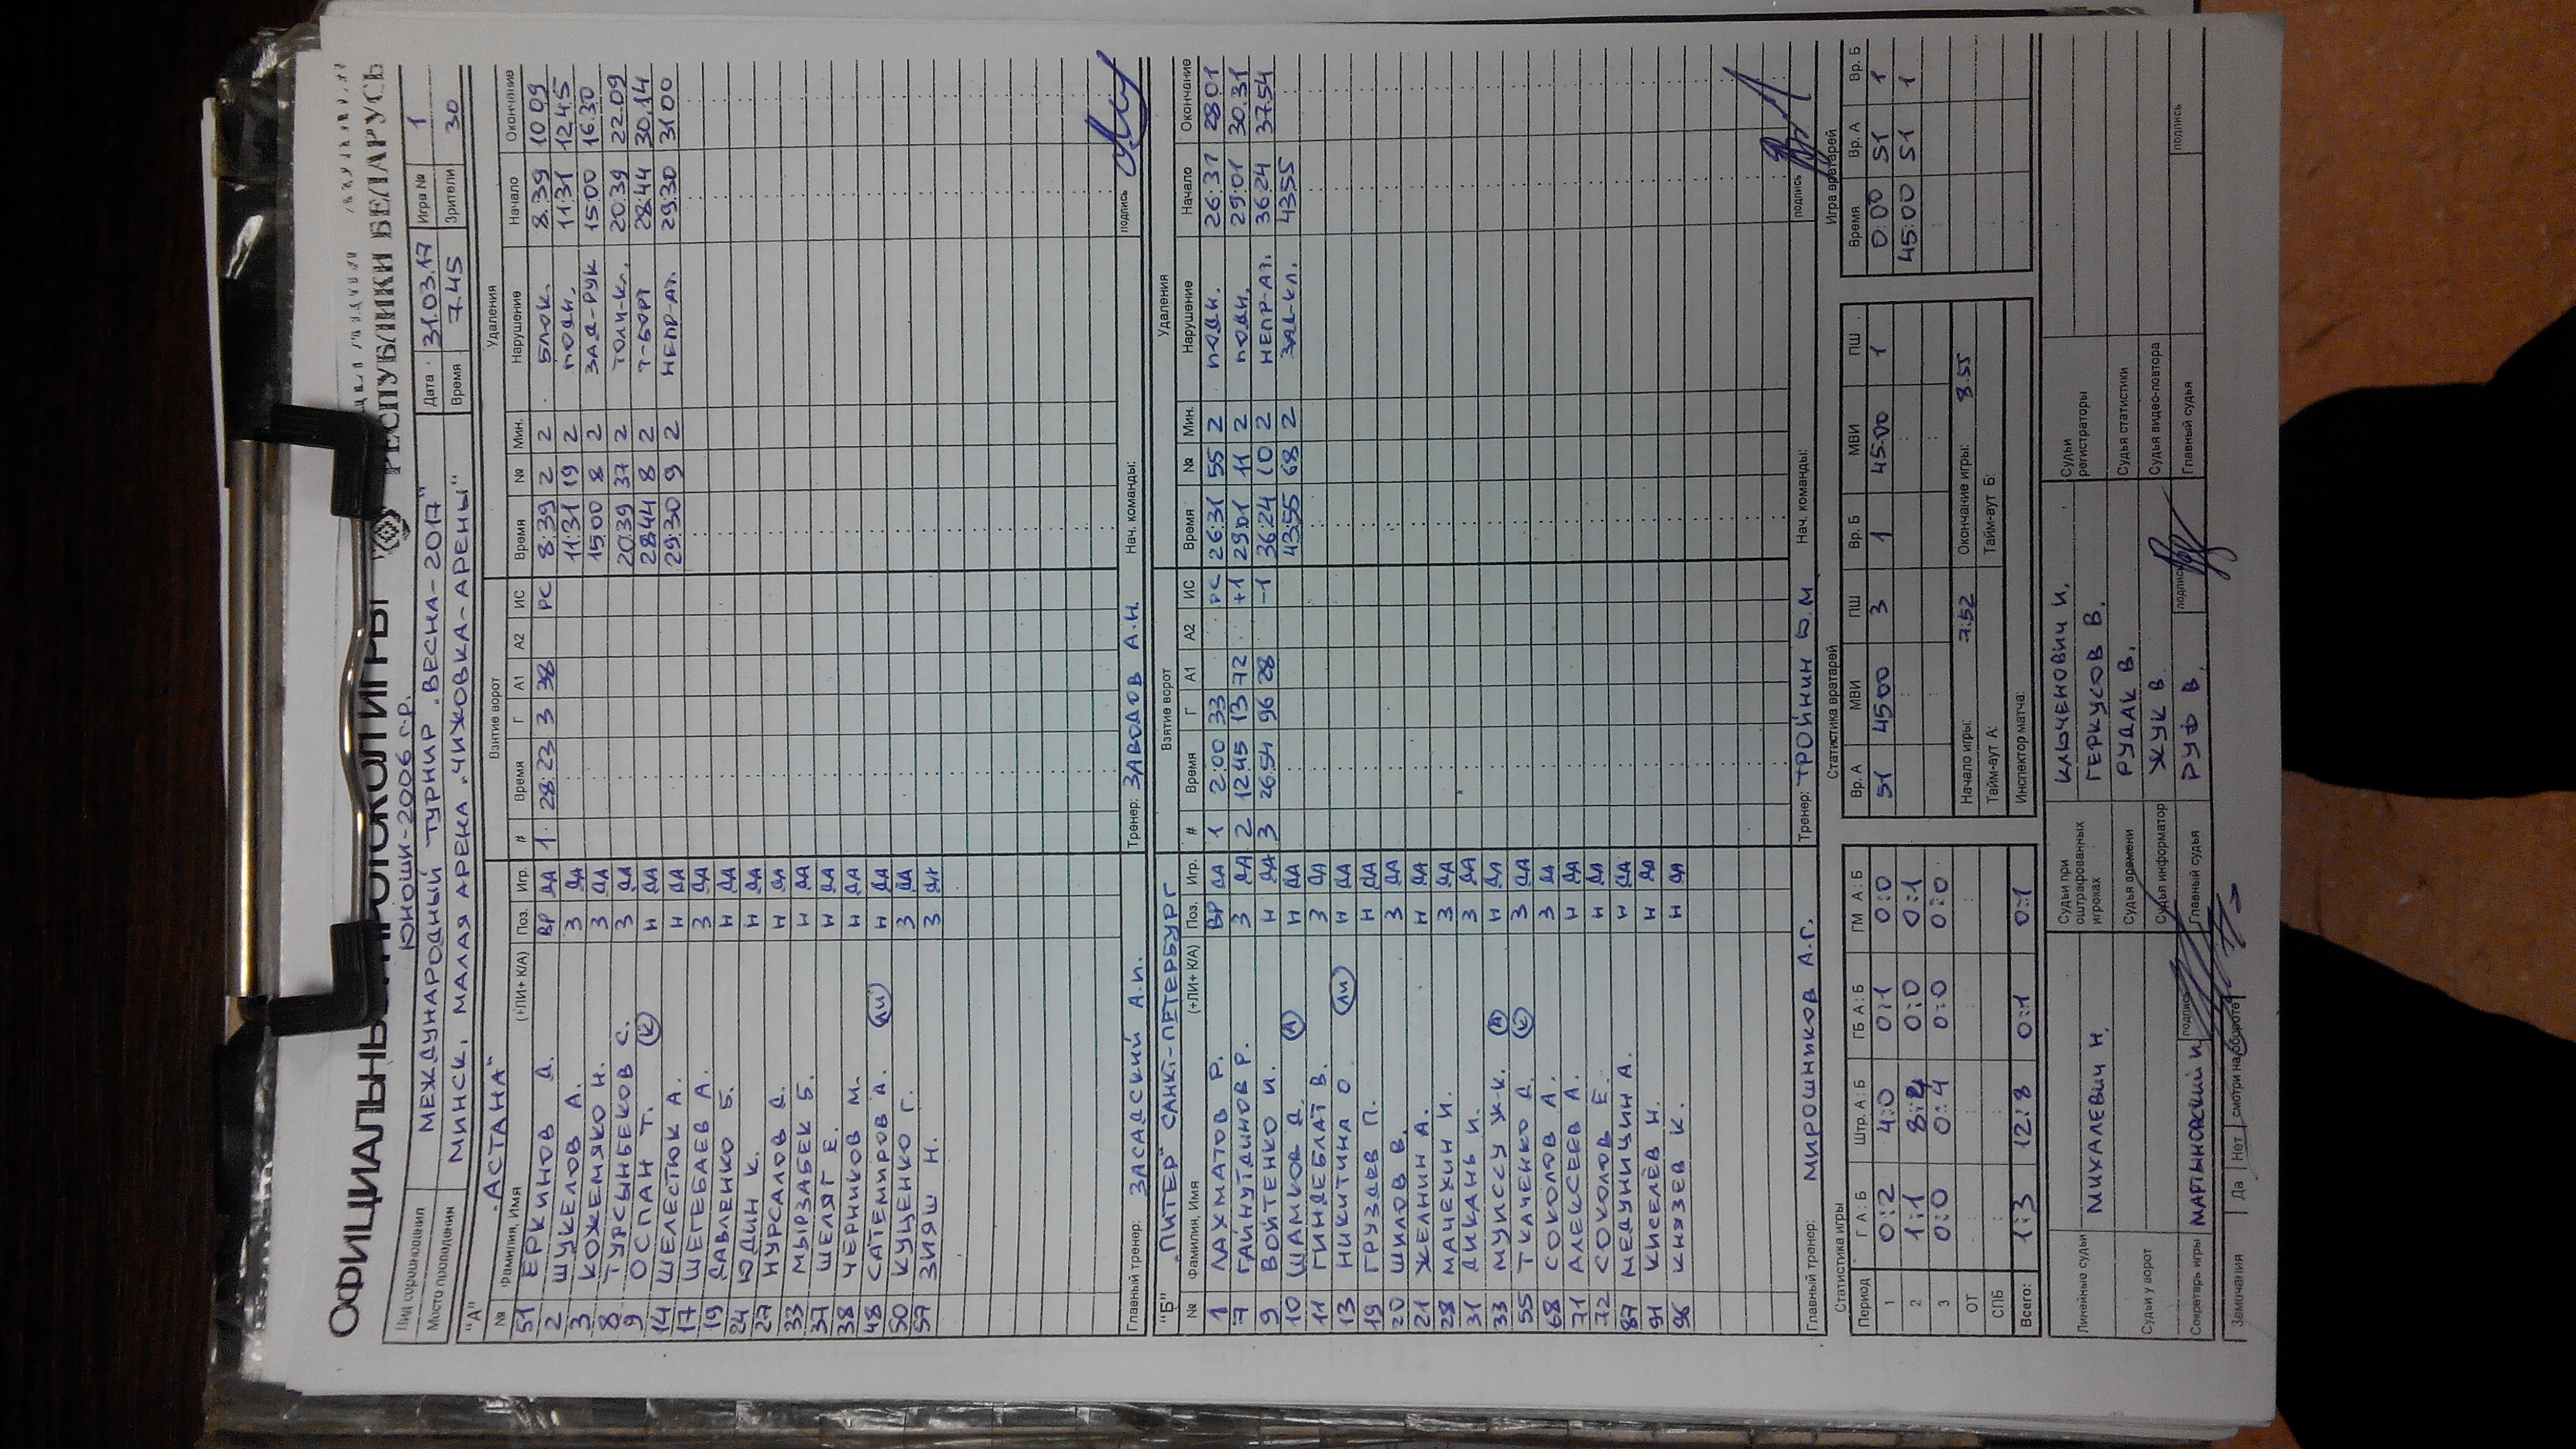 ОФИЦИАЛЬНЫЙ ПРОТОКОЛ ИГРЫ
РЕСПУБЛИКИ БЕЛАРУСЬ
ЮНОШИ-2006 г.р.
Вид соревнования МЕЖДУНАРОДНЫЙ ТУРНИР „ВЕСНА-2017" Дата 31.03.17 Игра № 1
Место проведения МИНСК, МАЛАЯ АРЕНА „ЧИЖОВКА-АРЕНЫ" Время 7.45 Зрители 30
"А" „АСТАНА" Взятие ворот Удаления
№ Фамилия, Имя (+ЛИ+ К/А) Поз. Игр. # Время Г А1 А2 ИС Время № Мин. Нарушение Начало Окончание
51 ЕРКИНОВ Д. ВР ДА 1 28:23 3 38 РС 8:39 2 2 БЛОК. 8.39 10 09
2 ШУКЕЛОВ А. З ДА 11:31 19 2 ПОДН. 11:31 12 45
3 КОЖЕМЯКО Н. З ДА 15:00 8 2 ЗАД-РУК 15:00 16.30
8 ТУРСЫНБЕКОВ С. З ДА 20:39 37 2 ТОЛЧ-К. 20:39 22.09
9 ОСПАН Т. К Н ДА 28:44 8 2 Т-БОРТ 28:44 30.14
14 ШЕЛЕСТЮК А. Н ДА 29:30 9 2 НЕПР-АТ. 29:30 31 00
17 ШЕГЕБАЕВ А. З ДА
19 ДАВЛЕНКО Б. Н ДА
24 ЮДИН К. Н ДА
27 НУРСАЛОВ Д. Н ДА
33 МЫРЗАБЕК Б. Н ДА
37 ШЕЛЯГ Е. Н ДА
38 ЧЕРНИКОВ М. Н ДА
48 САТЕМИРОВ А. ЛИ Н ДА
50 КУЦЕНКО Г. З ДА
57 ЗИЯШ Н. З ДА
Главный тренер: ЗАСАДСКИЙ А.И. Тренер: ЗАВОДОВ А.Н. Нач. команды: подпись
"Б" „ПИТЕР" САНКТ-ПЕТЕРБУРГ Взятие ворот Удаления
№ Фамилия, Имя (+ЛИ+ К/А) Поз. Игр. # Время Г А1 А2 ИС Время № Мин. Нарушение Начало Окончание
1 ЛАХМАТОВ Р. ВР ДА 1 2:00 33 РС 26:31 55 2 ПОДН. 26:31 28 01
7 ГАЙНУТДИНОВ Р. З ДА 2 12:45 13 72 +1 29:01 11 2 ПОДН. 29:01 30.31
9 ВОЙТЕНКО И. Н ДА 3 26:54 96 28 -1 36:24 10 2 НЕПР-АТ. 36 24 37.54
10 ШАМКОВ Д. А Н ДА 43:55 68 2 ЗАД-КЛ. 43 55
11 ГИНДЕБЛАТ В. З ДА
13 НИКИТИНА О ЛИ Н ДА
19 ГРУЗДЕВ П. Н ДА
20 ШИЛОВ В. З ДА
21 ЖЕЛНИН А. Н ДА
28 МАЧЕХИН И. З ДА
31 ДИКАНЬ И. З ДА
33 МУИССУ Ж-К. А Н ДА
55 ТКАЧЕНКО Д. К З ДА
68 СОКОЛОВ А. З ДА
71 АЛЕКСЕЕВ А. Н ДА
72 СОКОЛОВ Е. Н ДА
87 МЕДУНИЦИН А. Н ДА
91 КИСЕЛЁВ Н. Н ДА
96 КНЯЗЕВ К. Н ДА
Главный тренер: МИРОШНИКОВ А.Г. Тренер: ТРОЙНИН Ю.М Нач. команды: подпись
Статистика игры Статистика вратарей Игра вратарей
Период Г А : Б Штр. А : Б ГБ А : Б ГМ А : Б Вр. А МВИ ПШ Вр. Б МВИ ПШ Время Вр. А Вр. Б
1 0:2 4:0 0:1 0:0 51 45:00 3 1 45:00 1 0:00 51 1
2 1:1 8:4 0:0 0:1 45:00 51 1
3 0:0 0:4 0:0 0:0
ОТ Начало игры: 7:52 Окончание игры: 8.55
СПБ Тайм-аут А: Тайм-аут Б:
Всего: 1:3 12:8 0:1 0:1 Инспектор матча:
Линейные судьи МИХАЛЕВИЧ Н. Судьи при оштрафованных игроках КЛЮЧЕНОВИЧ И. ГЕРКУСОВ В. Судьи регистраторы
Судья времени РУДАК В. Судья статистики
Судьи у ворот Судья информатор ЖУК В. Судья видео-повтора
Секретарь игры МАРТЫНОВСКИЙ И подпись Главный судья РУФ В. подпись Главный судья подпись
Замечания Да Нет смотри на обороте